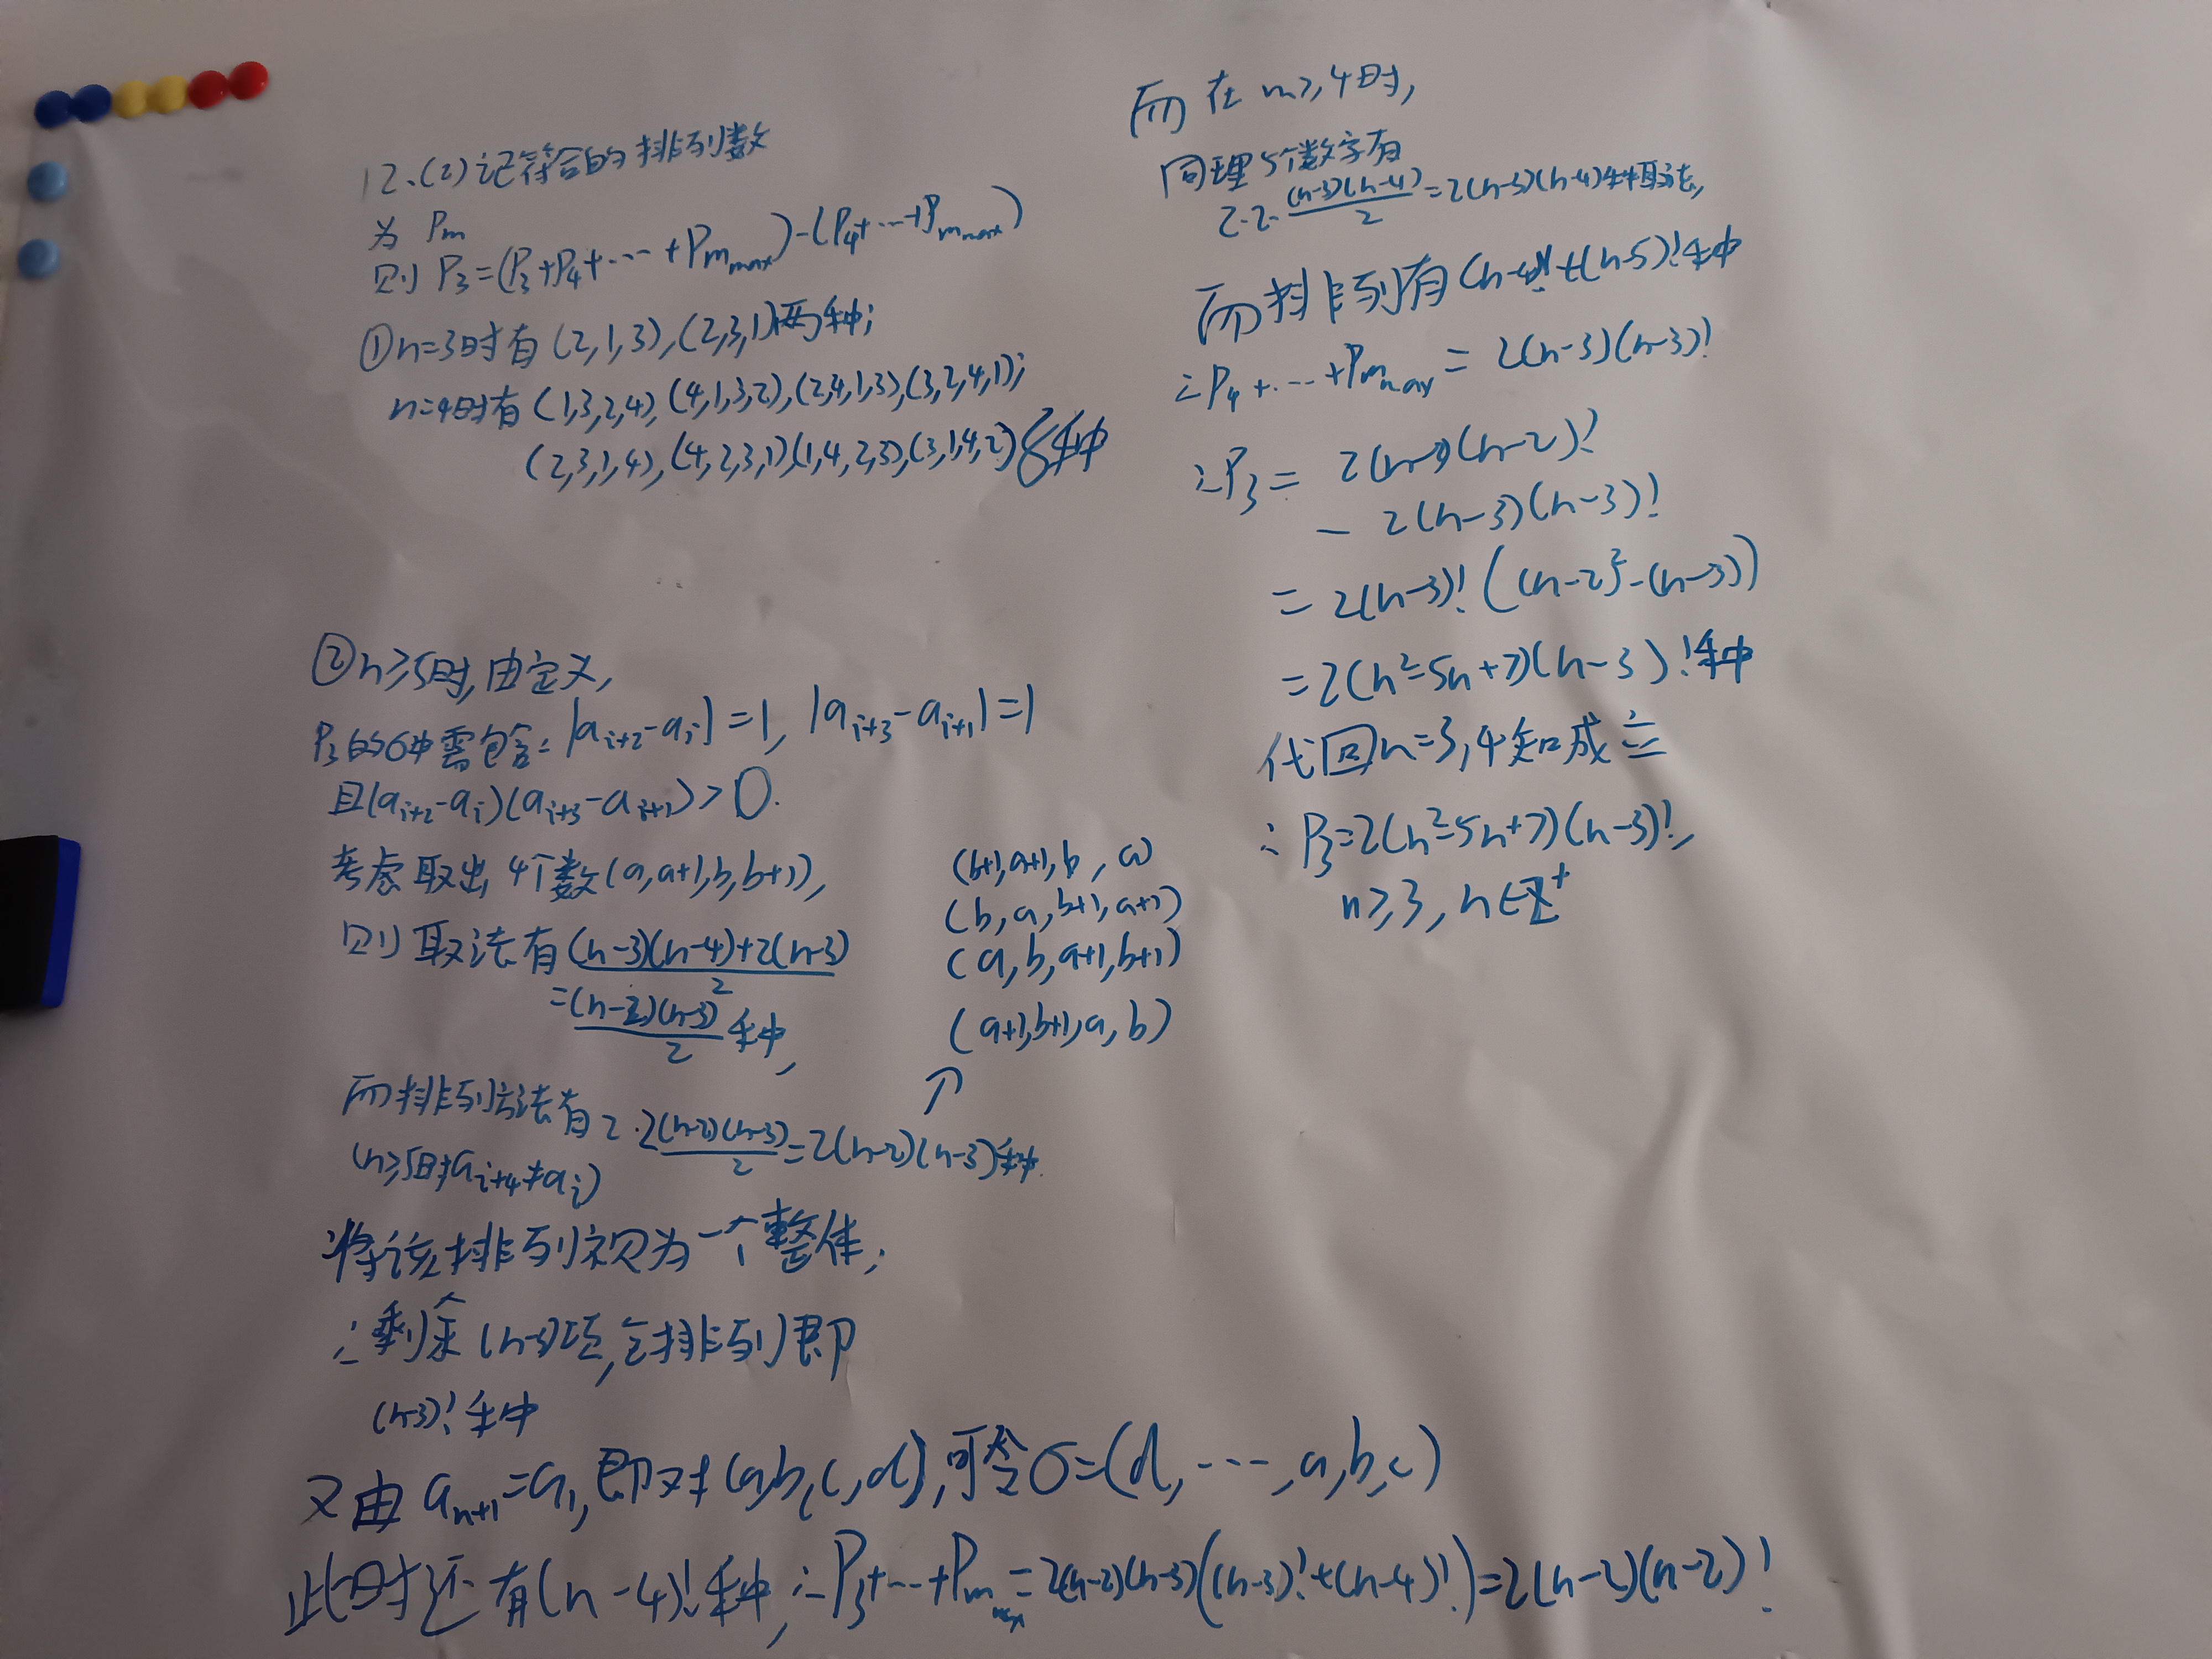 12.(2)记符合的排列数
为 Pₘ
则 P₃=(P₃+P₄+⋯+P_{m_max})-(P₄+⋯+P_{m_max})
①n=3时有(2,1,3),(2,3,1)两种;
n=4时有(1,3,2,4),(4,1,3,2),(2,4,1,3),(3,2,4,1);
(2,3,1,4),(4,2,3,1)(1,4,2,3),(3,1,4,2)8种
②n≥5时,由定义,
P₃的σ中需包含:|a_{i+2}-a_i|=1, |a_{i+3}-a_{i+1}|=1
且(a_{i+2}-a_i)(a_{i+3}-a_{i+1})>0.
考虑取出4个数(a,a+1,b,b+1),
则取法有 \frac{(n-3)(n-4)+2(n-3)}{2}
=\frac{(n-2)(n-3)}{2}种,
(b+1,a+1,b,a)
(b,a,b+1,a+1)
(a,b,a+1,b+1)
(a+1,b+1,a,b)
↑
而排列方法有2·2\frac{(n-2)(n-3)}{2}=2(n-2)(n-3)种.
(n≥5时a_{i+4}≠a_i)
将该排列视为一个整体,
∴剩余(n-3)项,全排列即
(n-3)!种
又由a_{n+1}=a₁,即对(a,b,c,d),可令σ=(d,⋯,a,b,c)
此时还有(n-4)!种,∴P₃+⋯+P_{m_max}=2(n-2)(n-3)((n-3)!+(n-4)!)=2(n-2)(n-2)!
而在m≥4时,
同理5个数字有
2·2·\frac{(n-3)(n-4)}{2}=2(n-3)(n-4)种取法,
而排列有(n-4)!+(n-5)!种
∴P₄+⋯+P_{m_max}=2(n-3)(n-3)!
∴P₃=2(n-2)(n-2)!
-2(n-3)(n-3)!
=2(n-3)!((n-2)²-(n-3))
=2(n²-5n+7)(n-3)!种
代回n=3,4知成立
∴P₃=2(n²-5n+7)(n-3)!,
n≥3,n∈Z⁺